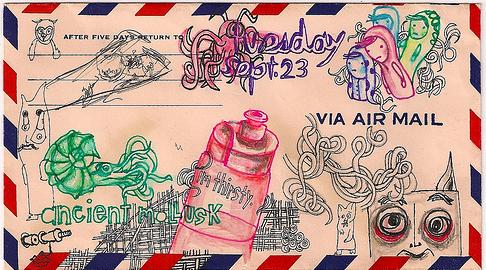 AFTER FIVE DAYS RETURN TO
Tuesday
Sept. 23
VIA AIR MAIL
i'm thirsty.
ancient mollusk